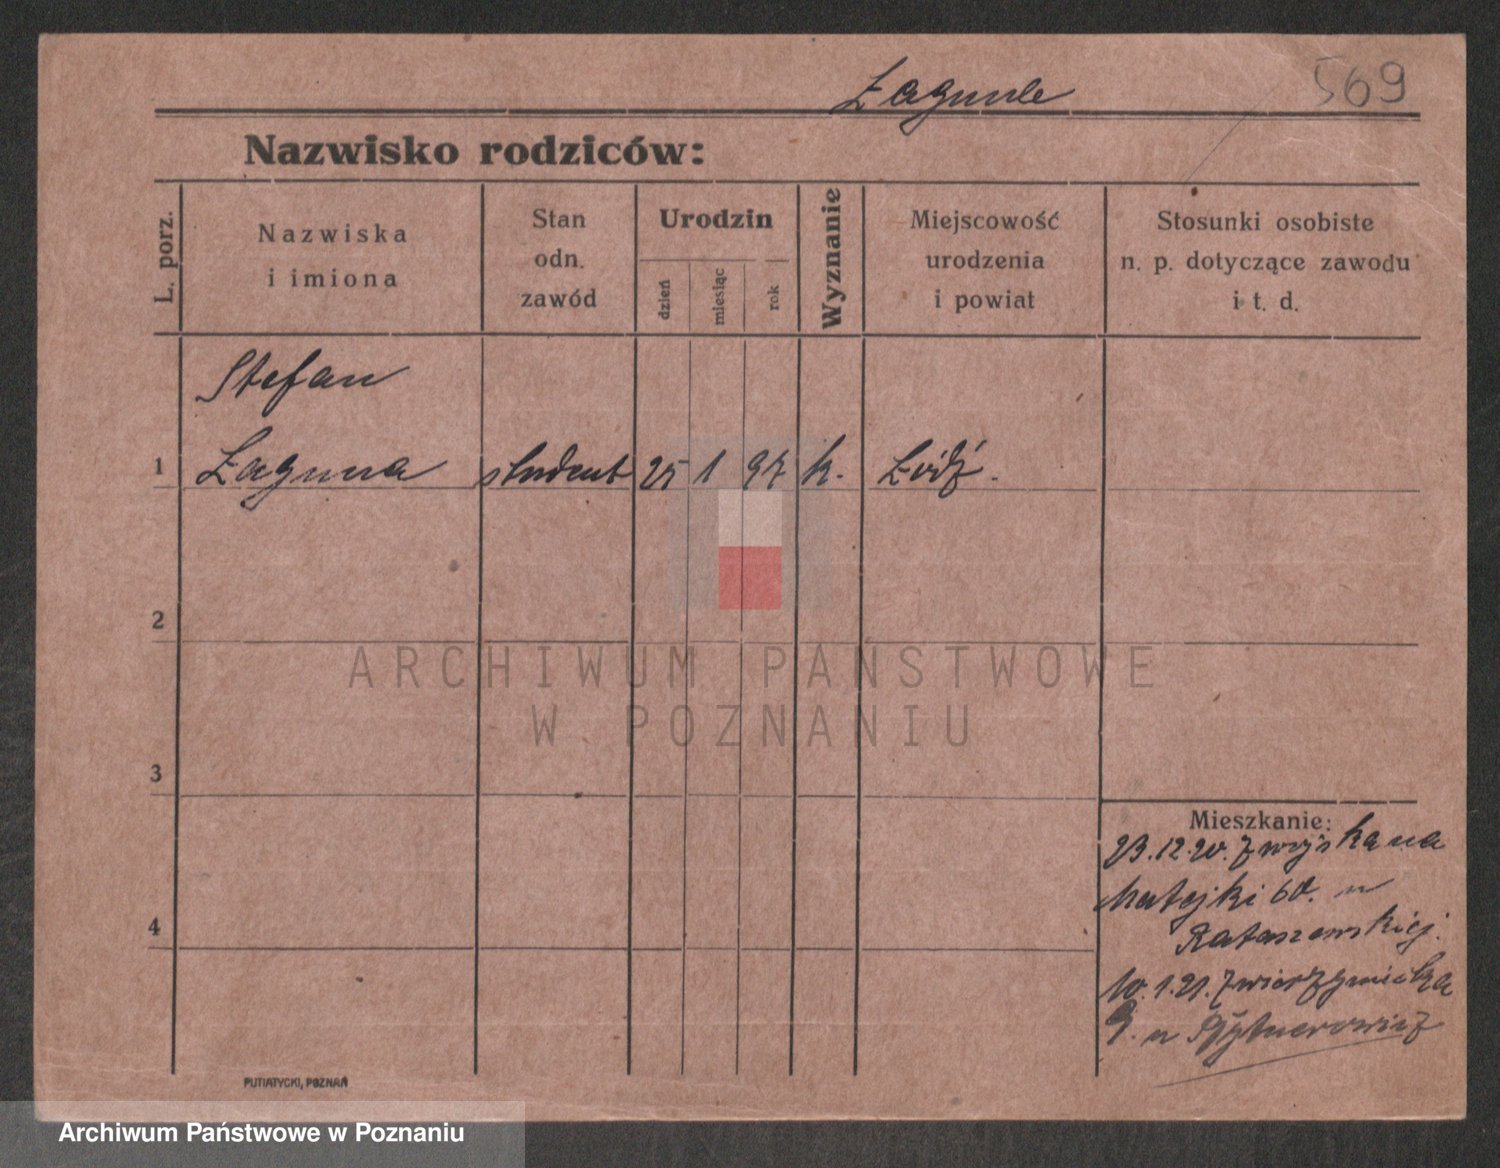 Łaguna
569
Nazwisko rodziców:
L. porz.
Nazwiska
i imiona
Stan
odn.
zawód
Urodzin
dzień
miesiąc
rok
Wyznanie
Miejscowość
urodzenia
i powiat
Stosunki osobiste
n. p. dotyczące zawodu
i t. d.
Stefan
1 Łaguna student 25 1 97 k. Łódź.
2
ARCHIWUM PAŃSTWOWE
W POZNANIU
3
4
Mieszkanie:
23.12.20. z wojska na
Matejki 60. u
Rataszewskiej.
10.1.21. Zwierzyniecka
9. u
PUTIATYCKI, POZNAŃ
Archiwum Państwowe w Poznaniu